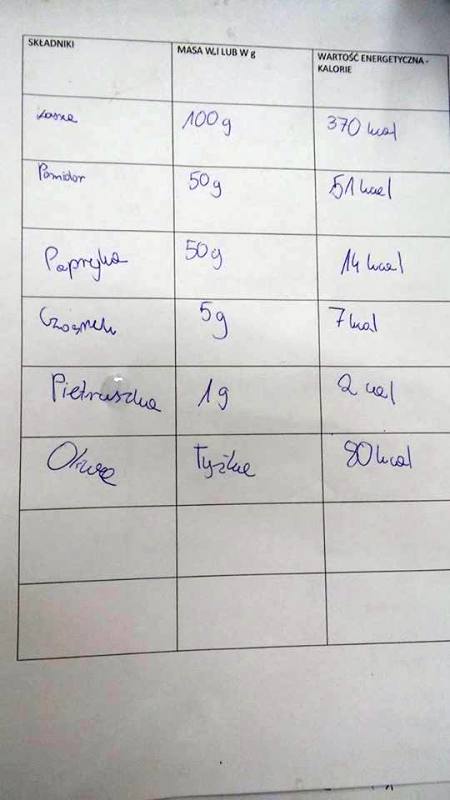 SKŁADNIKI MASA W.I LUB W g WARTOŚĆ ENERGETYCZNA -
KALORIE
kasza 100g 370 kcal
Pomidor 50g 51 kcal
Papryka 50g 14 kcal
Czosnek 5g 7 kcal
Pietruszka 1g 2 kcal
Oliwa łyżka 80 kcal